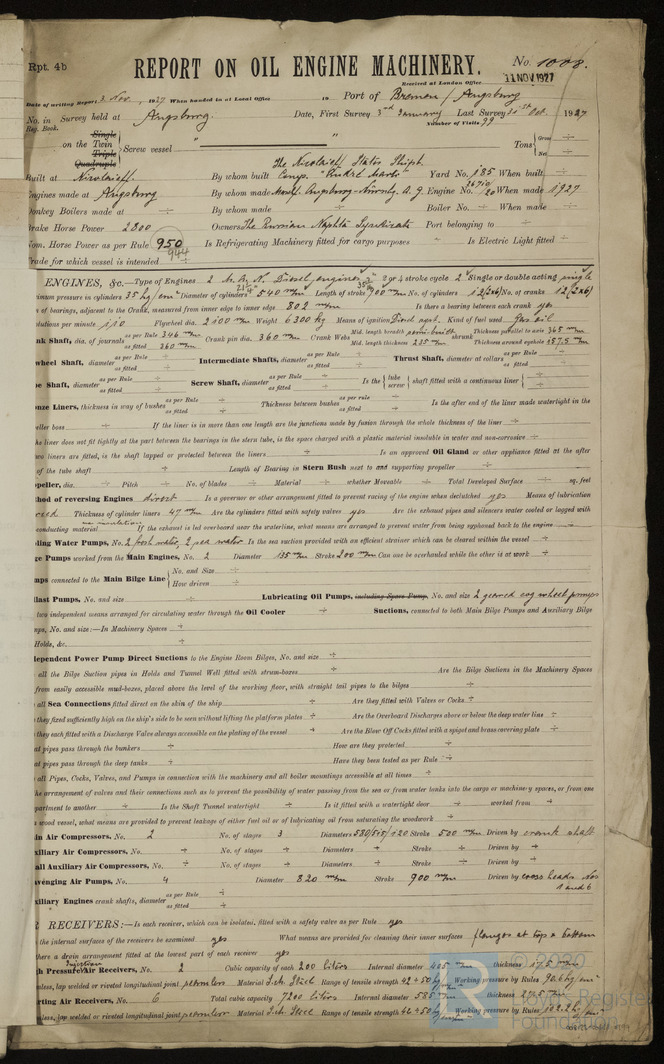 Rpt. 4b
REPORT ON OIL ENGINE MACHINERY.
No. 1008.
Received at London Office 11 NOV 1927
Date of writing Report 3 Nov 1927 When handed in at Local Office 19 Port of Bremen / Augsburg
No. in Survey held at Augsburg. Date, First Survey 3rd January Last Survey 31st Oct. 1927
Reg. Book. Number of Visits 99
Single
on the Twin Screw vessel " " Tons Gross ÷
Triple Net ÷
Quadruple
Built at Nicolaieff By whom built The Nicolaieff States Shipb. Comp. "André Marti" Yard No. 185 When built ÷
Engines made at Augsburg By whom made Masch. Augsburg-Nürnbg. A.G. Engine No. When made 1927
Donkey Boilers made at ÷ By whom made ÷ Boiler No. ÷ When made ÷
Brake Horse Power 2800 Owners The Russian Naphta Syndicate Port belonging to ÷
Nom. Horse Power as per Rule 950 944 Is Refrigerating Machinery fitted for cargo purposes ÷ Is Electric Light fitted ÷
Trade for which vessel is intended ÷
ENGINES, &c.—Type of Engines 2 M.A.N. Diesel engines 2 or 4 stroke cycle 2 Single or double acting single
pressure in cylinders 35 kg/cm² Diameter of cylinders 540 m/m Length of stroke 900 m/m No. of cylinders 12 (2x6) No. of cranks 12 (2x6)
of bearings, adjacent to the Crank, measured from inner edge to inner edge 802 m/m Is there a bearing between each crank yes
Revolutions per minute 110 Flywheel dia. 2100 m/m Weight 6300 kg Means of ignition Diesel syst. Kind of fuel used Gas oil
Crank Shaft, dia. of journals as per Rule 346 m/m as fitted 360 m/m Crank pin dia. 360 m/m Crank Webs Mid. length breadth semi-built Mid. length thickness 225 m/m shrunk Thickness parallel to axis 365 m/m Thickness around eyehole 157.5 m/m
wheel Shaft, diameter as per Rule as fitted ÷ Intermediate Shafts, diameter as per Rule as fitted ÷ Thrust Shaft, diameter at collars as per Rule as fitted ÷
Tube Shaft, diameter as per Rule as fitted ÷ Screw Shaft, diameter as per Rule as fitted ÷ Is the tube screw shaft fitted with a continuous liner ÷
Bronze Liners, thickness in way of bushes as per Rule as fitted ÷ Thickness between bushes as per rule as fitted ÷ Is the after end of the liner made watertight in the
propeller boss ÷ If the liner is in more than one length are the junctions made by fusion through the whole thickness of the liner ÷
the liner does not fit tightly at the part between the bearings in the stern tube, is the space charged with a plastic material insoluble in water and non-corrosive ÷
two liners are fitted, is the shaft lapped or protected between the liners ÷ Is an approved Oil Gland or other appliance fitted at the after
of the tube shaft ÷ Length of Bearing in Stern Bush next to and supporting propeller ÷
Propeller, dia. ÷ Pitch ÷ No. of blades ÷ Material ÷ whether Moveable ÷ Total Developed Surface ÷ sq. feet
Method of reversing Engines direct Is a governor or other arrangement fitted to prevent racing of the engine when declutched yes Means of lubrication
forced Thickness of cylinder liners 47 m/m Are the cylinders fitted with safety valves yes Are the exhaust pipes and silencers water cooled or lagged with
non-conducting material If the exhaust is led overboard near the waterline, what means are arranged to prevent water from being syphoned back to the engine ÷
Cooling Water Pumps, No. 2 fresh water, 2 sea water Is the sea suction provided with an efficient strainer which can be cleared within the vessel ÷
Bilge Pumps worked from the Main Engines, No. 2 Diameter 135 m/m Stroke 200 m/m Can one be overhauled while the other is at work ÷
Pumps connected to the Main Bilge Line No. and Size ÷ How driven ÷
Ballast Pumps, No. and size ÷ Lubricating Oil Pumps, including Spare Pump, No. and size 2 geared cog wheel pumps
two independent means arranged for circulating water through the Oil Cooler ÷ Suctions, connected to both Main Bilge Pumps and Auxiliary Bilge
Pumps, No. and size:—In Machinery Spaces ÷
Holds, &c. ÷
Independent Power Pump Direct Suctions to the Engine Room Bilges, No. and size ÷
all the Bilge Suction pipes in Holds and Tunnel Well fitted with strum-boxes ÷ Are the Bilge Suctions in the Machinery Spaces
from easily accessible mud-boxes, placed above the level of the working floor, with straight tail pipes to the bilges ÷
all Sea Connections fitted direct on the skin of the ship ÷ Are they fitted with Valves or Cocks ÷
they fixed sufficiently high on the ship's side to be seen without lifting the platform plates ÷ Are the Overboard Discharges above or below the deep water line ÷
they each fitted with a Discharge Valve always accessible on the plating of the vessel ÷ Are the Blow Off Cocks fitted with a spigot and brass covering plate ÷
What pipes pass through the bunkers ÷ How are they protected ÷
What pipes pass through the deep tanks ÷ Have they been tested as per Rule ÷
all Pipes, Cocks, Valves, and Pumps in connection with the machinery and all boiler mountings accessible at all times ÷
the arrangement of valves and their connections such as to prevent the possibility of water passing from the sea or from water tanks into the cargo or machinery spaces, or from one
compartment to another ÷ Is the Shaft Tunnel watertight ÷ Is it fitted with a watertight door ÷ worked from ÷
a wood vessel, what means are provided to prevent leakage of either fuel oil or of lubricating oil from saturating the woodwork ÷
Main Air Compressors, No. 2 No. of stages 3 Diameters 580/515/120 Stroke 520 m/m Driven by crank shaft
Auxiliary Air Compressors, No. ÷ No. of stages ÷ Diameters ÷ Stroke ÷ Driven by ÷
Small Auxiliary Air Compressors, No. ÷ No. of stages ÷ Diameters ÷ Stroke ÷ Driven by ÷
Scavenging Air Pumps, No. 4 Diameter 820 m/m Stroke 900 m/m Driven by cross heads Nos 1 and 6
Auxiliary Engines crank shafts, diameter as per Rule as fitted ÷
RECEIVERS:—Is each receiver, which can be isolated, fitted with a safety valve as per Rule yes
the internal surfaces of the receivers be examined yes What means are provided for cleaning their inner surfaces flanges at top & bottom
there a drain arrangement fitted at the lowest part of each receiver yes
High Pressure Injection Air Receivers, No. 2 Cubic capacity of each 200 liters Internal diameter 405 m/m thickness 17.5 m/m
Seamless, lap welded or riveted longitudinal joint seamless Material S.M. Steel Range of tensile strength 42÷50 kg Working pressure by Rules 90.6 kg/cm²
Starting Air Receivers, No. 6 Total cubic capacity 7200 liters Internal diameter 585 m/m thickness
Seamless, lap welded or riveted longitudinal joint seamless Material S.M. Steel Range of tensile strength 42÷50 kg Working pressure by Rules
© 2020
Lloyd's Register
Foundation